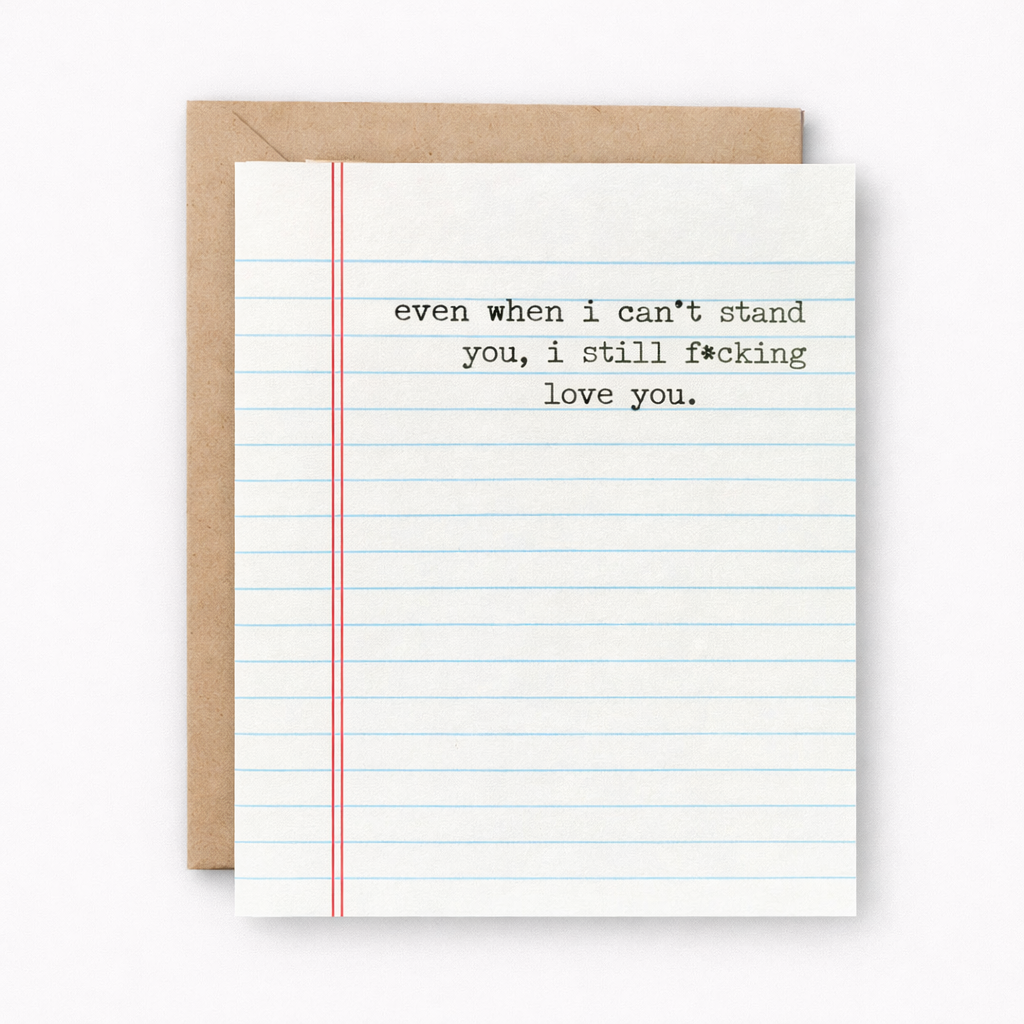 even when i can't stand
you, i still f*cking
love you.